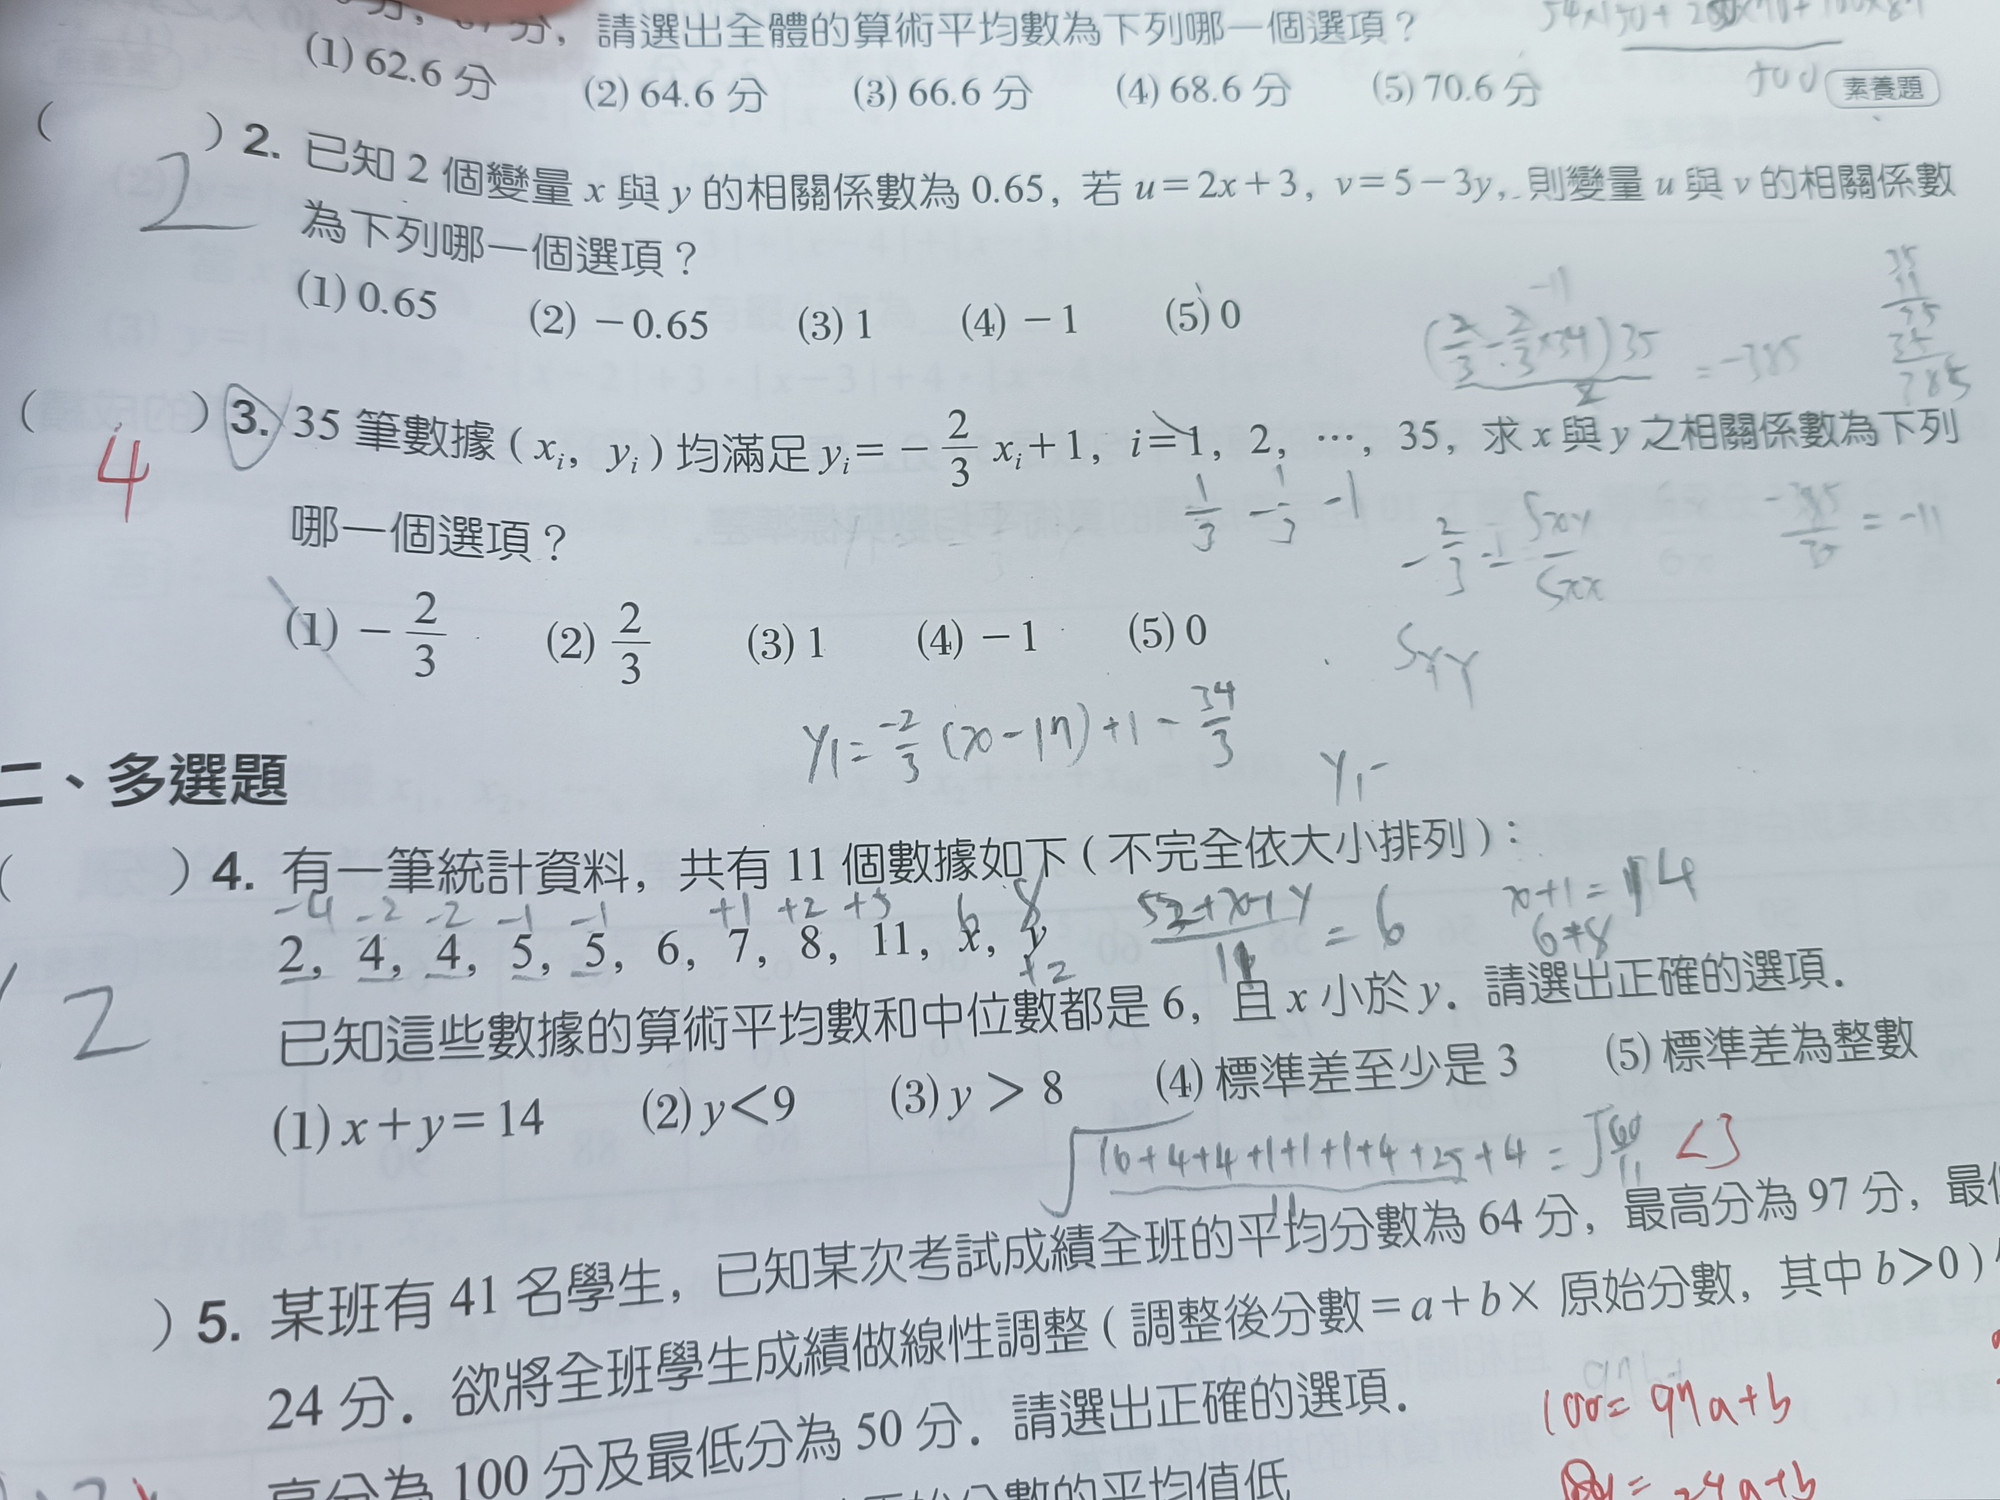 分，請選出全體的算術平均數為下列哪一個選項？
(1) 62.6 分 (2) 64.6 分 (3) 66.6 分 (4) 68.6 分 (5) 70.6 分 素養題
( 2 ) 2. 已知 2 個變量 x 與 y 的相關係數為 0.65，若 u＝2x＋3，v＝5－3y，則變量 u 與 v 的相關係數
為下列哪一個選項？
(1) 0.65 (2) －0.65 (3) 1 (4) －1 (5) 0
-11
(2/3 - 2/3×34)35 / 2 = -385
35
11
35
35
385
( 4 ) 3. 35 筆數據 ( xᵢ，yᵢ ) 均滿足 yᵢ＝－2/3 xᵢ＋1，i＝1，2，…，35，求 x 與 y 之相關係數為下列
哪一個選項？
1/3 -1/3 -1
-2/3 = Sxy/Sxx
-385/35 = -11
(1) －2/3 (2) 2/3 (3) 1 (4) －1 (5) 0
Syy
y1 = -2/3 (x-17)+1 - 34/3
y1-
二、多選題
( ) 4. 有一筆統計資料，共有 11 個數據如下 ( 不完全依大小排列 )：
-4 -2 -2 -1 -1 +1 +2 +5 6 8
2，4，4，5，5，6，7，8，11，x，y
+2
52+x+y / 11 = 6
x+1=14
6+8
2
已知這些數據的算術平均數和中位數都是 6，且 x 小於 y．請選出正確的選項．
(1) x＋y＝14 (2) y＜9 (3) y ＞ 8 (4) 標準差至少是 3 (5) 標準差為整數
√16+4+4+1+1+1+4+25+4 / 11 = √60/11 <3
) 5. 某班有 41 名學生，已知某次考試成績全班的平均分數為 64 分，最高分為 97 分，最
24 分．欲將全班學生成績做線性調整 ( 調整後分數＝a＋b× 原始分數，其中 b＞0 )
高分為 100 分及最低分為 50 分．請選出正確的選項．
100=97a+b
=24a+b
分數的平均值低